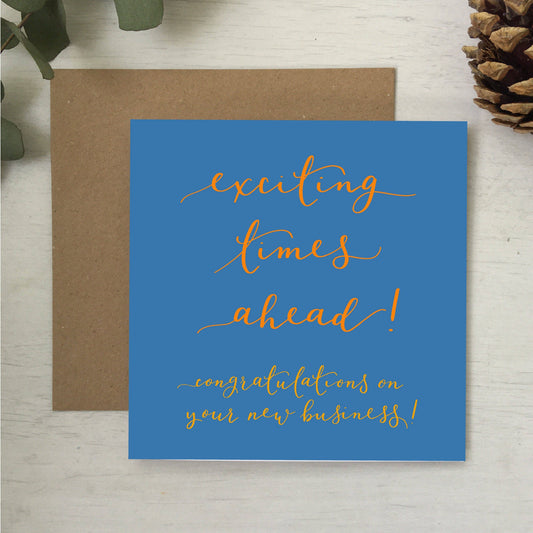 exciting
times
ahead!
congratulations on
your new business!